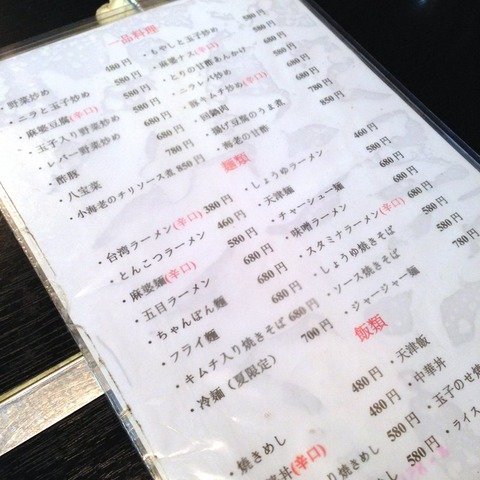 一品料理
・野菜炒め 480円
・ニラと玉子炒め 580円
・麻婆豆腐(辛口) 580円
・玉子入り野菜炒め 580円
・レバー野菜炒め 580円
・酢豚
・八宝菜
・小海老のチリソース煮 850円
・もやしと玉子炒め 580円
・麻婆ナス(辛口) 580円
・とりの甘酢あんかけ
・ニラレバ炒め
・豚キムチ炒め(辛口)
・回鍋肉
・揚げ豆腐のうま煮
・海老の甘酢 850円
麺類
・台湾ラーメン(辛口) 380円
・とんこつラーメン 460円
・麻婆麺(辛口) 580円
・五目ラーメン 680円
・ちゃんぽん麺 680円
・フライ麺 680円
・キムチ入り焼きそば 680円
・冷麺（夏限定） 700円
・しょうゆラーメン 460円
・天津麺 580円
・チャーシュー麺
・味噌ラーメン
・スタミナラーメン(辛口)
・しょうゆ焼きそば
・ソース焼きそば
・ジャージャー麺 780円
飯類
・焼きめし 480円
丼(辛口) 480円
り焼きめし 580円
580円
・天津飯
・中華丼
・玉子のせ焼
・ライス